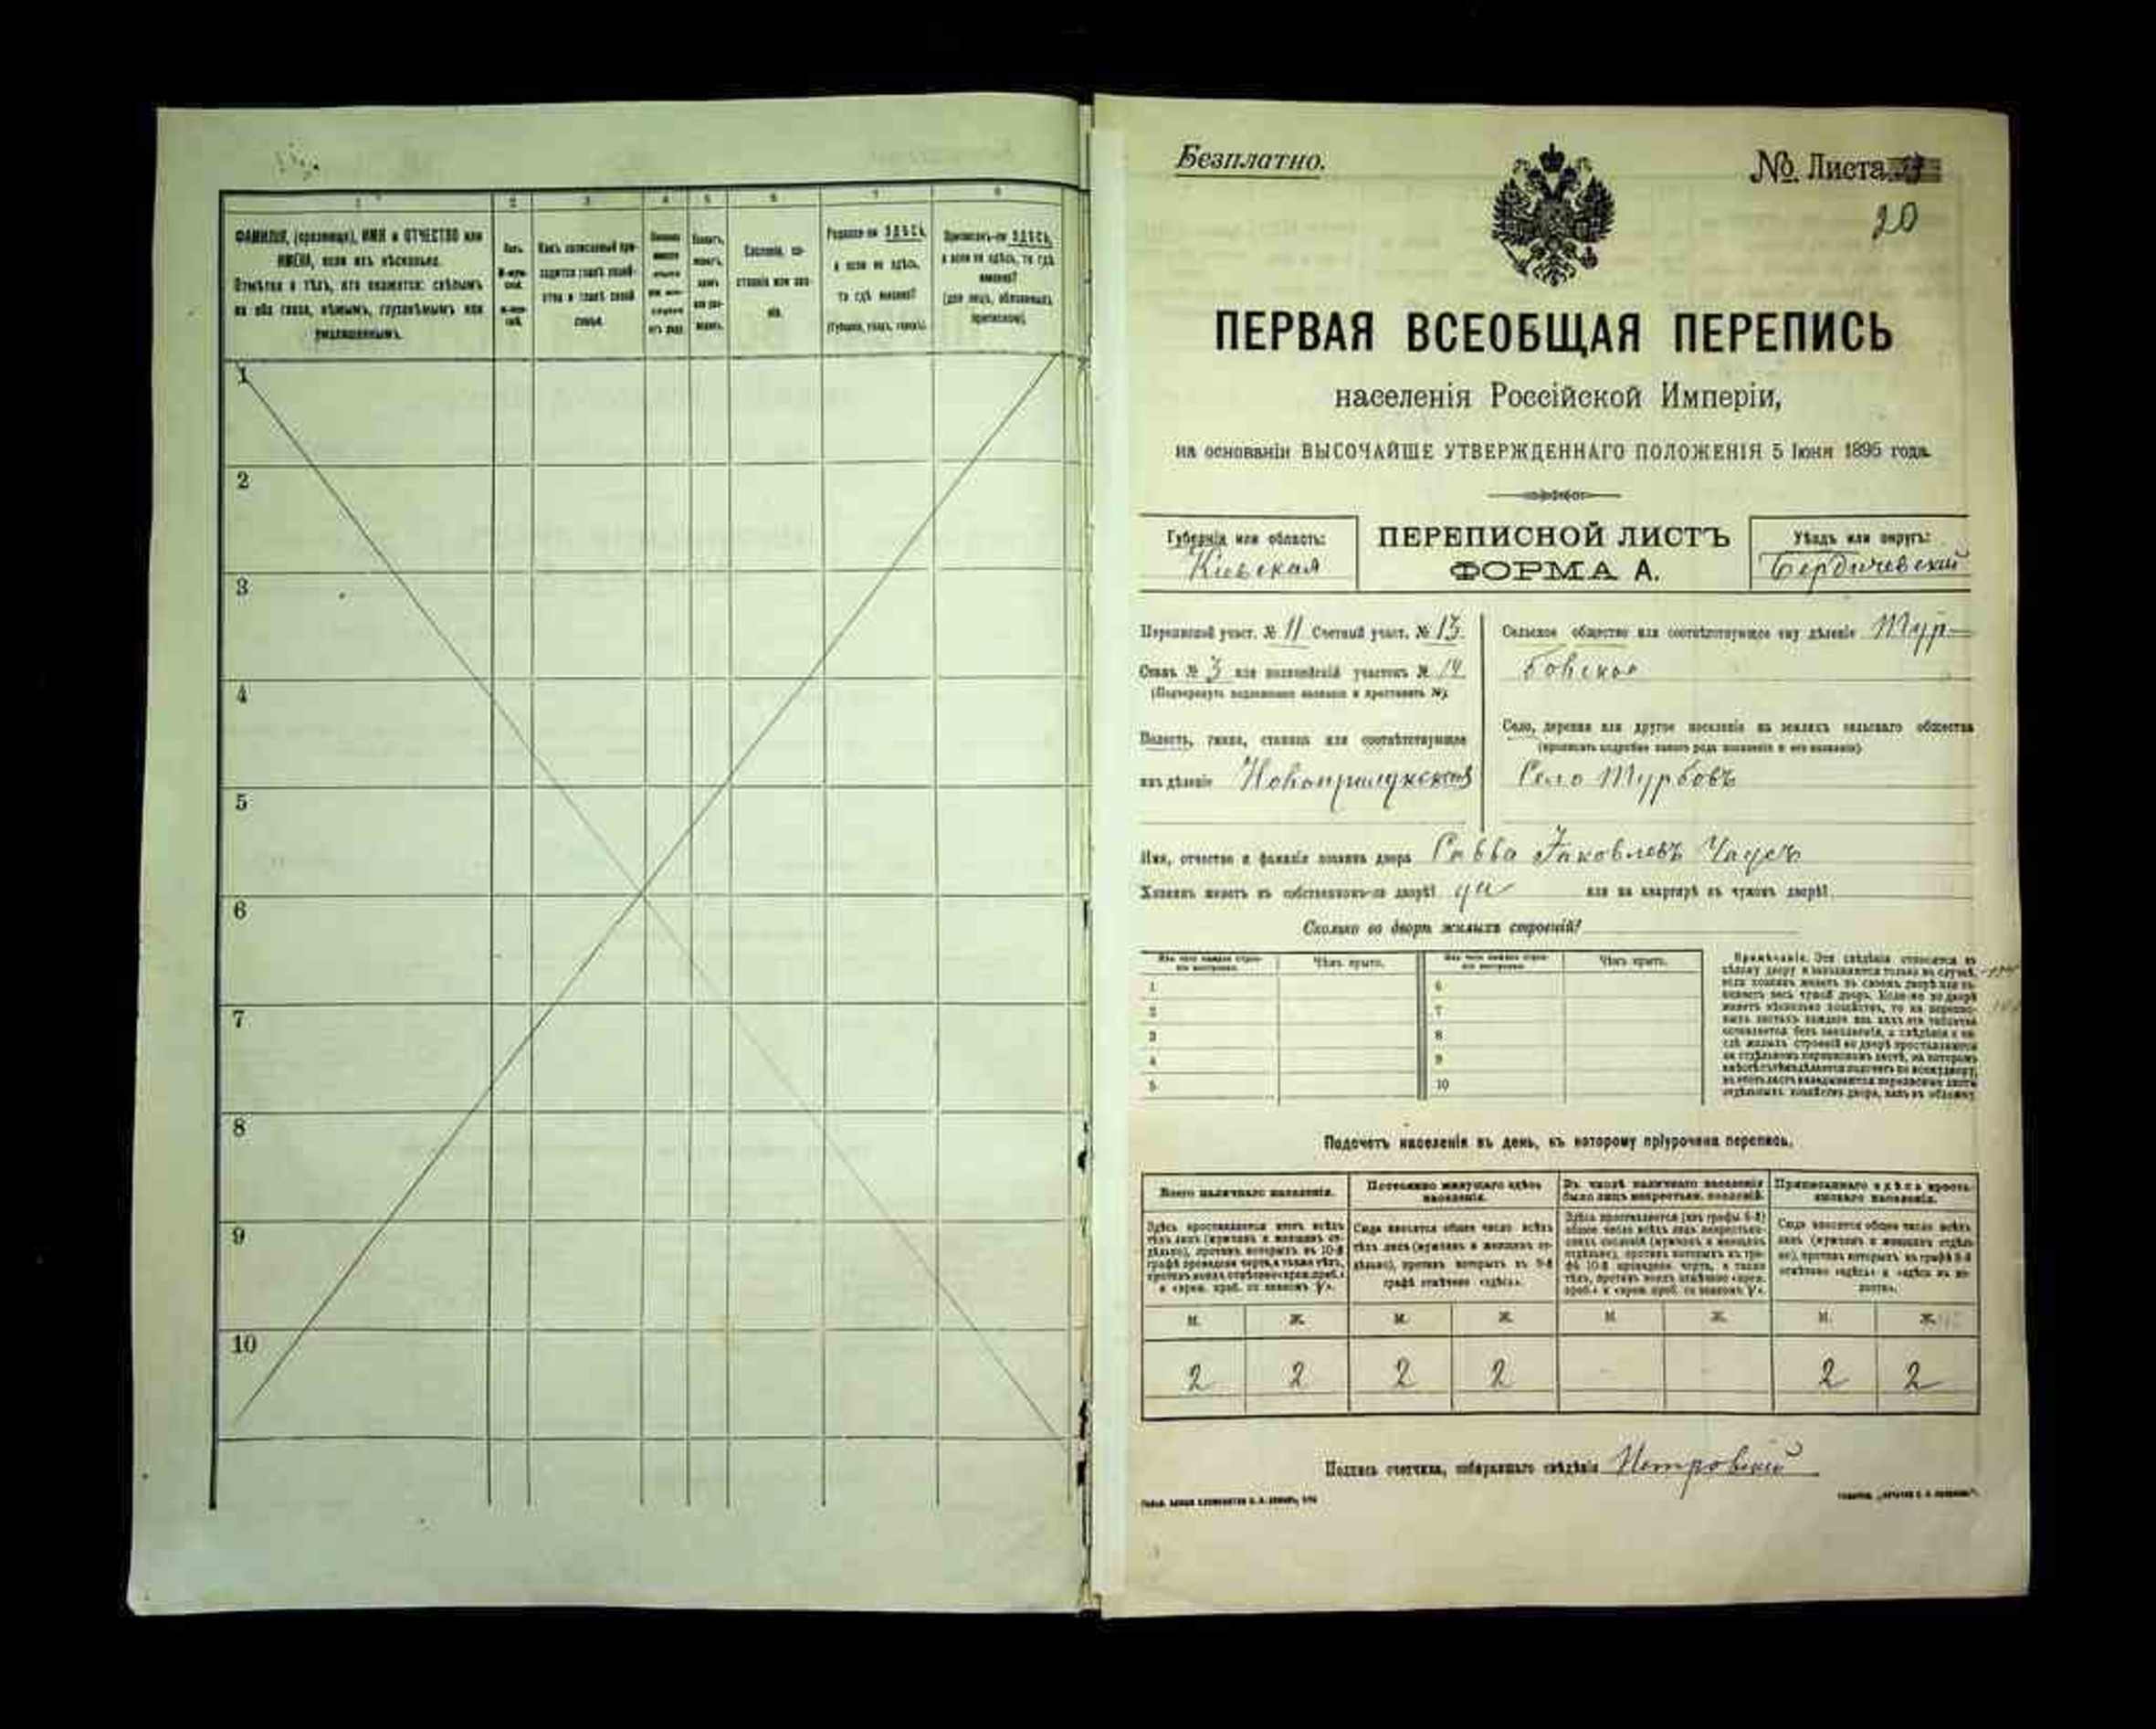 1
2
3
4
5
6
7
8
ФАМИЛІЯ, (прозвище), ИМЯ и ОТЧЕСТВО или
ИМЕНА, если ихъ нѣсколько.
Отмѣтка о тѣхъ, кто окажется: слѣпымъ
на оба глаза, нѣмымъ, глухонѣмымъ или
умалишеннымъ.
Полъ.
Какъ записанный при-
ходится главѣ хозяй-
ства и главѣ своей
семьи.
Сословіе, со-
стояніе или зва-
ніе.
Родился-ли ЗДѢСЬ,
а если не здѣсь,
то гдѣ именно?
(Губернія, уѣздъ, городъ).
Приписанъ-ли ЗДѢСЬ,
а если не здѣсь, то гдѣ
именно?
(для лицъ, обязанныхъ
припиской).
1
2
3
4
5
6
7
8
9
10
Безплатно.
№ Листа
20
ПЕРВАЯ ВСЕОБЩАЯ ПЕРЕПИСЬ
населенія Россійской Имперіи,
на основаніи ВЫСОЧАЙШЕ УТВЕРЖДЕННАГО ПОЛОЖЕНІЯ 5 Іюня 1895 года.
Губернія или область:
Кіевская
ПЕРЕПИСНОЙ ЛИСТЪ
ФОРМА А.
Уѣздъ или округъ:
Бердичевскій
Переписной участ. № 11 Счетный участ. № 13
Станъ № 3 или полицейскій участокъ № 14
(Подчеркнуть подлежащее названіе и проставить №).
Волость, гмина, станица или соотвѣтствующее
имъ дѣленіе Новоприлукская
Сельское общество или соотвѣтствующее ему дѣленіе Тур-
бовское
Село, деревня или другое поселеніе на земляхъ сельскаго общества
(прописать подробно какого рода поселеніе и его названіе)
Село Турбовъ
Имя, отчество и фамилія хозяина двора Савва Яковлевъ Чаусъ
Хозяинъ живетъ въ собственномъ-ли дворѣ? да или на квартирѣ въ чужомъ дворѣ?
Сколько во дворѣ жилыхъ строеній?
Изъ чего каждое строе-
ніе выстроено.
Чѣмъ крыто.
Изъ чего каждое строе-
ніе выстроено.
Чѣмъ крыто.
1
2
3
4
5
6
7
8
9
10
Примѣчаніе. Эти свѣдѣнія относятся къ
цѣлому двору и заполняются только въ случаѣ,
если хозяинъ живетъ въ своемъ дворѣ или за-
нимаетъ весь чужой дворъ. Если-же во дворѣ
живетъ нѣсколько хозяйствъ, то на перепис-
ныхъ листахъ каждаго изъ нихъ эта табличка
оставляется безъ заполненія, а свѣдѣнія о чи-
слѣ жилыхъ строеній во дворѣ проставляются
на отдѣльномъ переписномъ листѣ, на которомъ
Подсчетъ населенія въ день, къ которому пріурочена перепись.
Всего наличнаго населенія.
Постоянно живущаго здѣсь
населенія.
Въ числѣ наличнаго населенія
было лицъ некрестьян. сословій.
Приписаннаго здѣсь кресть-
янскаго населенія.
Здѣсь проставляется итогъ всѣхъ
тѣхъ лицъ (мужчинъ и женщинъ от-
дѣльно), противъ которыхъ въ 10-й
графѣ проведена черта, а также тѣхъ,
противъ коихъ отмѣчено «врем. преб.»
и «врем. преб. со знакомъ V».
Сюда вносится общее число всѣхъ
тѣхъ лицъ (мужчинъ и женщинъ от-
дѣльно), противъ которыхъ въ 9-й
графѣ отмѣчено «здѣсь».
Здѣсь проставляется (изъ графы 6-й)
общее число всѣхъ лицъ некрестьян-
скихъ сословій (мужчинъ и женщинъ
отдѣльно), противъ которыхъ въ гра-
фѣ 10-й проведена черта, а также
тѣхъ, противъ коихъ отмѣчено «врем.
преб.» и «врем. преб. со знакомъ V».
Сюда вносится общее число всѣхъ
лицъ (мужчинъ и женщинъ отдѣль-
но), противъ которыхъ въ графѣ 8-й
отмѣчено «здѣсь» и «здѣсь въ во-
лости».
М. Ж. М. Ж. М. Ж. М. Ж.
2 2 2 2 - - 2 2
Подпись счетчика, собиравшаго свѣдѣнія Петровскій